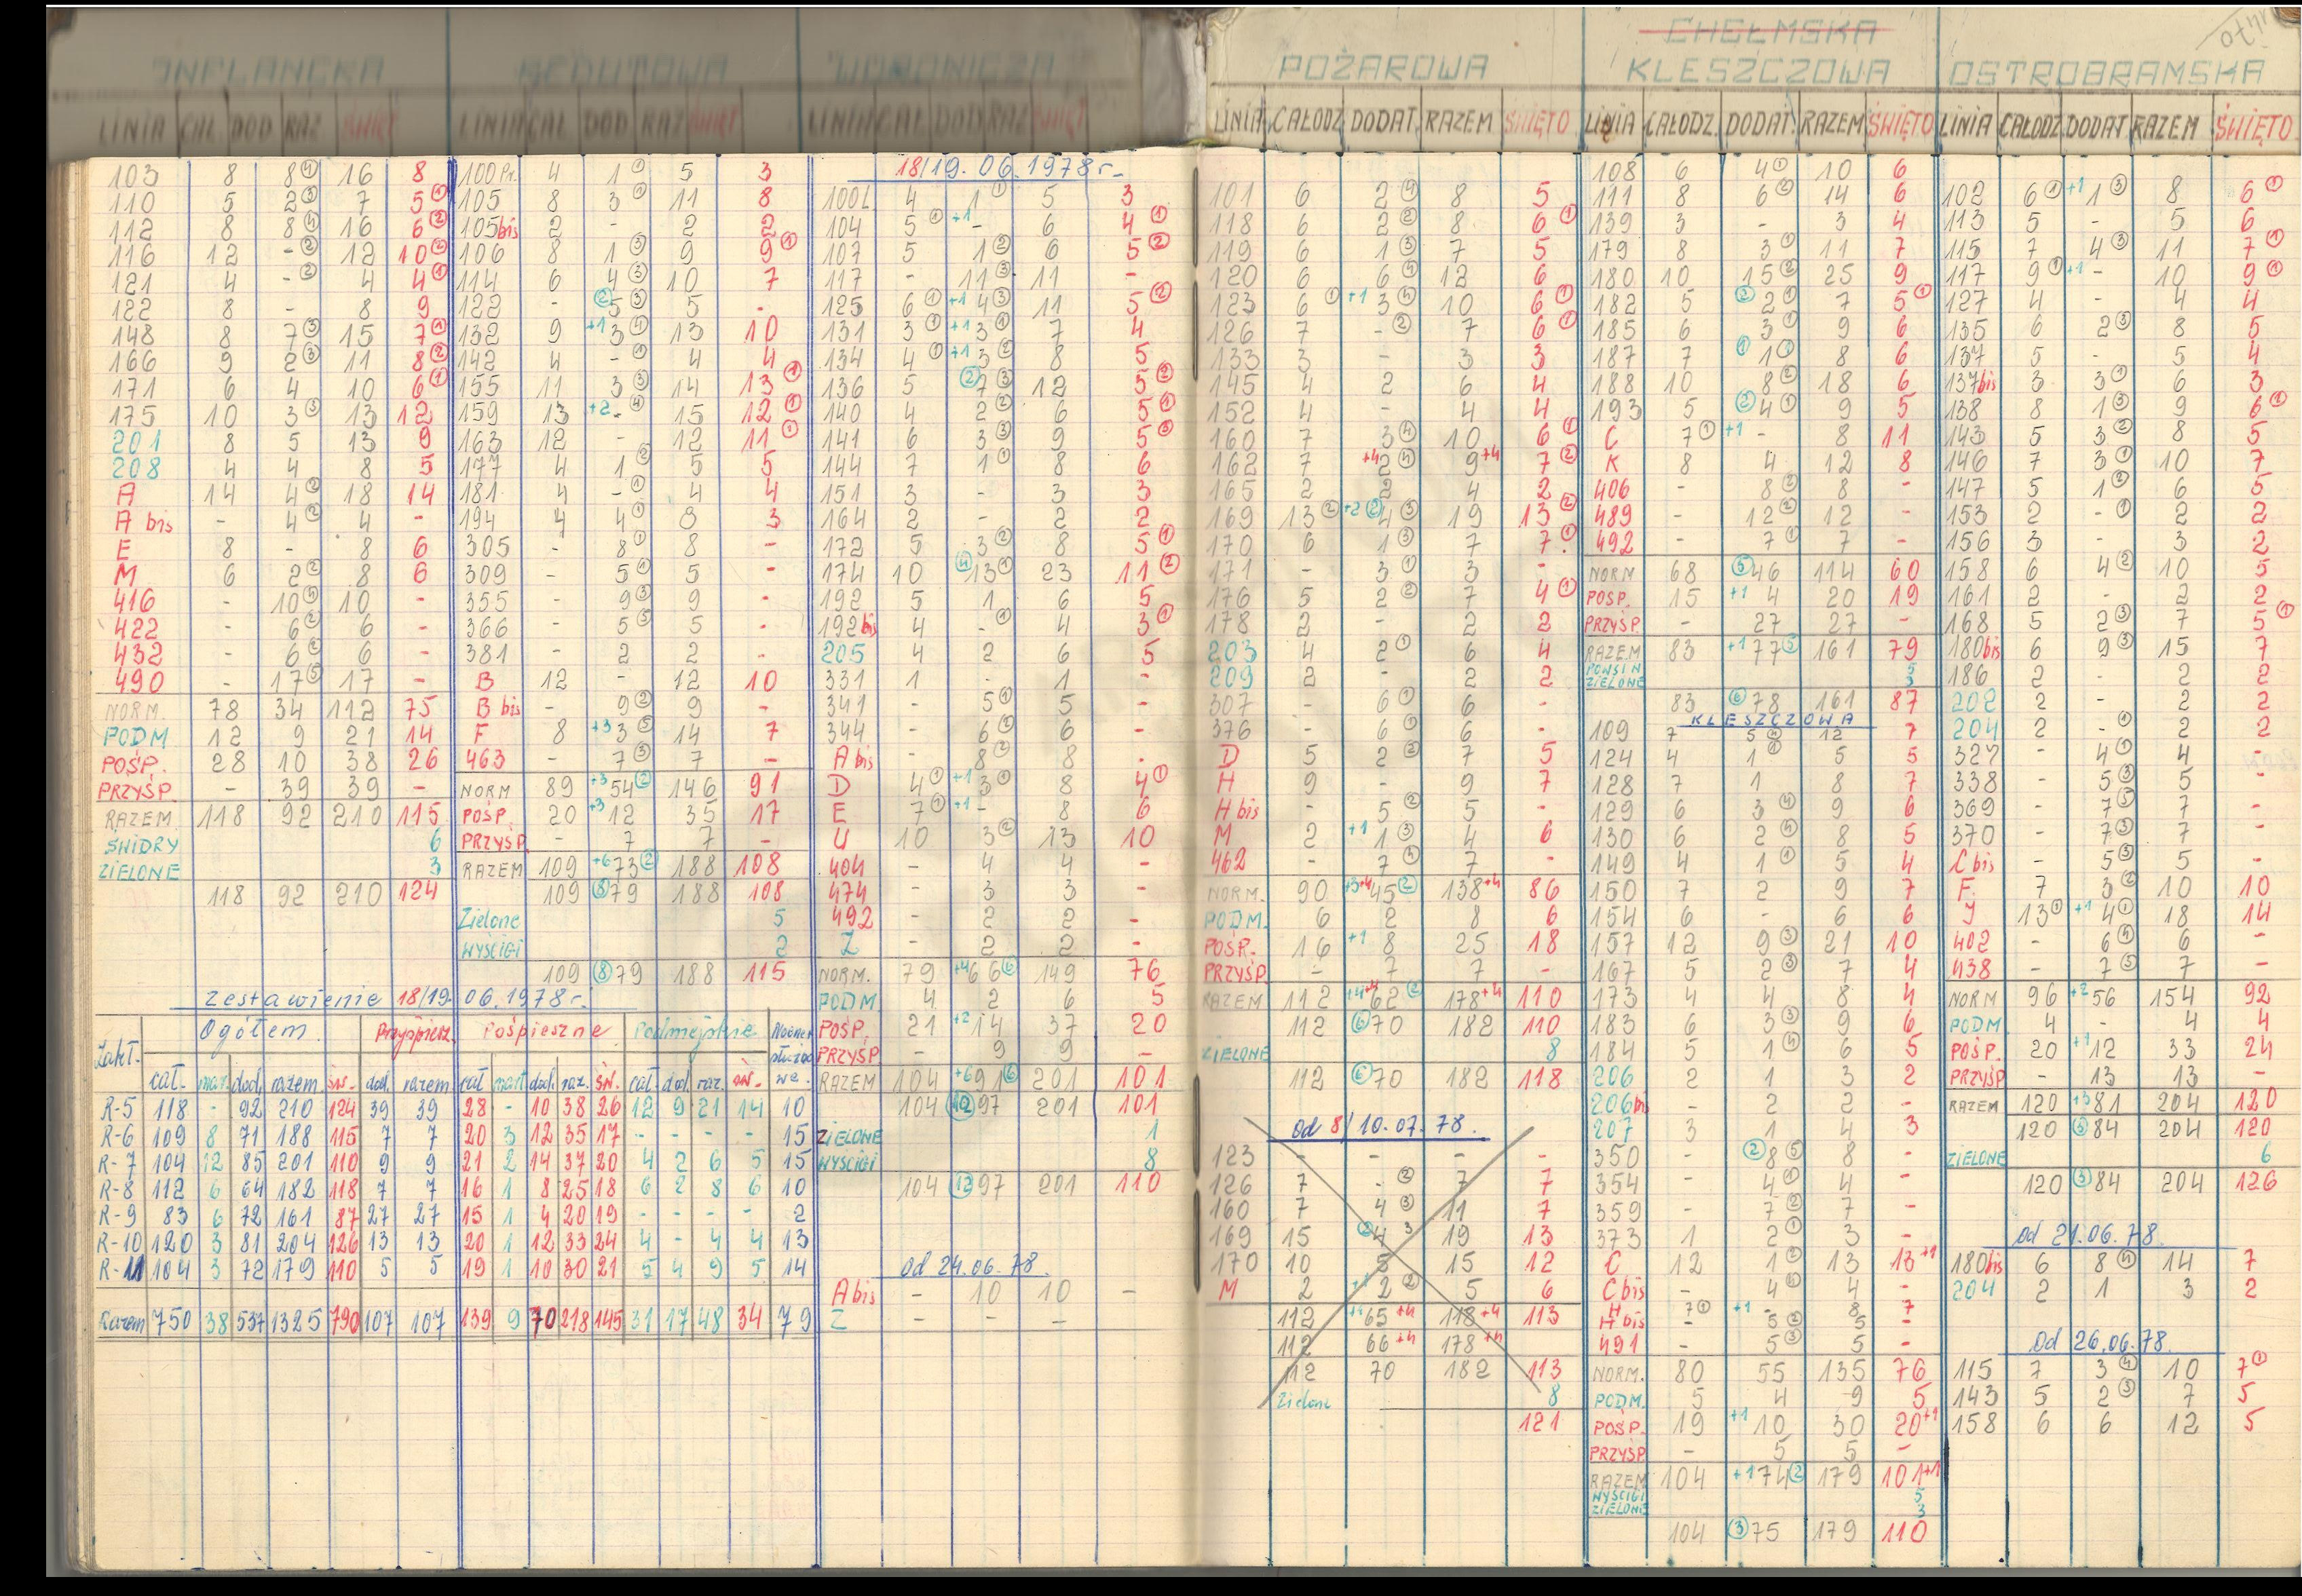 INFLANCKA
LINIA CAŁ DOD RAZ ŚWIĘT
103 8 8④ 16 8
110 5 2③ 7 5①
112 8 8④ 16 6②
116 12 -② 12 10②
121 4 -② 4 4①
122 8 - 8 9
148 8 7③ 15 7①
166 9 2③ 11 8②
171 6 4 10 6①
175 10 3③ 13 12
201 8 5 13 9
208 4 4 8 5
A 14 4② 18 14
A bis - 4② 4 -
E 8 - 8 6
M 6 2② 8 6
416 - 10④ 10 -
422 - 6② 6 -
432 - 6② 6 -
490 - 17⑤ 17 -
NORM. 78 34 112 75
PODM 12 9 21 14
POŚP. 28 10 38 26
PRZYŚP. - 39 39 -
RAZEM 118 92 210 115
ŚWIDRY 6
ZIELONE 3
118 92 210 124
REDUTOWA
LINIA CAŁ DOD RAZ ŚWIĘT
100Pr. 4 1① 5 3
105 8 3① 11 8
105bis 2 - 2 2
106 8 1③ 9 9①
114 6 4③ 10 7
122 - ②5③ 5 -
132 9 +1 3④ 13 10
142 4 -① 4 4
155 11 3③ 14 13①
159 13 +2 -④ 15 12①
163 12 - 12 11①
177 4 1② 5 5
181 4 -① 4 4
194 4 4① 8 3
305 - 8① 8 -
309 - 5① 5 -
355 - 9③ 9 -
366 - 5③ 5 -
381 - 2 2 -
B 12 - 12 10
B bis - 9② 9 -
F 8 +3 3⑤ 14 7
463 - 7③ 7 -
NORM 89 +3 54② 146 91
POŚP. 20 +3 12 35 17
PRZYŚP. - 7 7 -
RAZEM 109 +6 73② 188 108
109 ⑧79 188 108
Zielone 5
WYŚCIGI 2
109 ⑧79 188 115
WORONICZA
LINIA CAŁ DOD RAZ ŚWIĘT
18/19.06.1978r.
100L 4 1① 5 3
104 5① +1 - 6 4①
107 5 1② 6 5②
117 - 11③ 11 -
125 6① +1 4③ 11 5②
131 3① +1 3① 7 4
134 4① +1 3② 8 5
136 5 ②7③ 12 5②
140 4 2② 6 5①
141 6 3③ 9 5③
144 7 1① 8 6
151 3 - 3 3
164 2 - 2 2
172 5 3② 8 5①
174 10 ④13① 23 11②
192 5 1 6 5
192bis 4 -① 4 3①
205 4 2 6 5
331 1 - 1 -
341 - 5① 5 -
344 - 6② 6 -
A bis - 8② 8 -
D 4① +1 3① 8 4①
E 7① +1 - 8 6
U 10 3② 13 10
404 - 4 4 -
474 - 3 3 -
492 - 2 2 -
Z - 2 2 -
NORM. 79 +4 66⑥ 149 76
PODM 4 2 6 5
POŚP. 21 +2 14 37 20
PRZYŚP - 9 9 -
RAZEM 104 +6 91⑥ 201 101
104 ⑫97 201 101
ZIELONE 1
WYŚCIGI 8
104 ⑫97 201 110
od 24.06.78.
A bis - 10 10 -
Z - - - -
Zestawienie 18/19.06.1978r.
Zakł. Ogółem Przyśpiesz. Pośpieszne Podmiejskie Nocne służbowe.
cał. marł. dod. razem św. dod. razem cał marł dod. raz. św. cał. dod. raz. św.
R-5 118 - 92 210 124 39 39 28 - 10 38 26 12 9 21 14 10
R-6 109 8 71 188 115 7 7 20 3 12 35 17 - - - - 15
R-7 104 12 85 201 110 9 9 21 2 14 37 20 4 2 6 5 15
R-8 112 6 64 182 118 7 7 16 1 8 25 18 6 2 8 6 10
R-9 83 6 72 161 87 27 27 15 1 4 20 19 - - - - 2
R-10 120 3 81 204 126 13 13 20 1 12 33 24 4 - 4 4 13
R-11 104 3 72 179 110 5 5 19 1 10 30 21 5 4 9 5 14
Razem 750 38 537 1325 790 107 107 139 9 70 218 145 31 17 48 34 79
POŻAROWA
LINIA CAŁODZ. DODAT. RAZEM ŚWIĘTO
101 6 2④ 8 5
118 6 2② 8 6①
119 6 1③ 7 5
120 6 6④ 12 6
123 6① +1 3④ 10 6①
126 7 -② 7 6①
133 3 - 3 3
145 4 2 6 4
152 4 - 4 4
160 7 3④ 10 6①
162 7 +4 2④ 9+4 7②
165 2 2 4 2
169 13② +2②4③ 19 13②
170 6 1③ 7 7①
171 - 3① 3 -
176 5 2② 7 4①
178 2 - 2 2
203 4 2① 6 4
209 2 - 2 2
307 - 6① 6 -
376 - 6① 6 -
D 5 2② 7 5
H 9 - 9 7
H bis - 5② 5 -
M 2 +1 1③ 4 6
462 - 7④ 7 -
NORM. 90 +3+4 45② 138+4 86
PODM. 6 2 8 6
POŚP. 16 +1 8 25 18
PRZYŚP. - 7 7 -
RAZEM 112 +4+4 62② 178+4 110
112 ⑥70 182 110
ZIELONE 8
112 ⑥70 182 118
od 8/10.07.78.
123 - - - -
126 7 -② 7 7
160 7 4③ 11 7
169 15 ②4 3 19 13
170 10 5 15 12
M 2 +1 2② 5 6
112 +1 65+4 118+4 113
112 66+4 178+4
112 70 182 113
Zielone 8
121
CHEŁMSKA
KLESZCZOWA
LINIA CAŁODZ. DODAT. RAZEM ŚWIĘTO
108 6 4① 10 6
111 8 6② 14 6
139 3 - 3 4
179 8 3① 11 7
180 10 15② 25 9
182 5 ②2① 7 5①
185 6 3① 9 6
187 7 ①1① 8 6
188 10 8② 18 6
193 5 ②4① 9 5
C 7① +1 - 8 11
K 8 4 12 8
406 - 8② 8 -
489 - 12② 12 -
492 - 7① 7 -
NORM 68 ⑤46 114 60
POSP. 15 +1 4 20 19
PRZYŚP. - 27 27 -
RAZEM 83 +1 77⑤ 161 79
POWSIN 5
ZIELONE 3
83 ⑥78 161 87
KLESZCZOWA
109 7 5④ 12 7
124 4 1① 5 5
128 7 1 8 7
129 6 3④ 9 6
130 6 2④ 8 5
149 4 1① 5 4
150 7 2 9 7
154 6 - 6 6
157 12 9③ 21 10
167 5 2③ 7 4
173 4 4 8 4
183 6 3③ 9 6
184 5 1④ 6 5
206 2 1 3 2
206bis - 2 2 -
207 3 1 4 3
350 - ②8⑤ 8 -
354 - 4① 4 -
359 - 7② 7 -
373 1 2① 3 -
C 12 1② 13 13+1
C bis - 4④ 4 -
H 7① +1 - 8 7
H bis - 5② 5 -
491 - 5③ 5 -
NORM. 80 55 135 76
PODM. 5 4 9 5
POŚP. 19 +1 10 30 20+1
PRZYŚP - 5 5 -
RAZEM 104 +1 74② 179 101+1
WYŚCIGI 5
ZIELONE 3
104 ③75 179 110
OSTROBRAMSKA
LINIA CAŁODZ DODAT RAZEM ŚWIĘTO
102 6① +1 1③ 8 6①
113 5 - 5 6
115 7 4③ 11 7①
117 9① +1 - 10 9①
127 4 - 4 4
135 6 2③ 8 5
137 5 - 5 4
137bis 3 3① 6 3
138 8 1③ 9 6①
143 5 3② 8 5
146 7 3① 10 7
147 5 1② 6 5
153 2 -① 2 2
156 3 - 3 2
158 6 4② 10 5
161 2 - 2 2
168 5 2③ 7 5①
180bis 6 9③ 15 7
186 2 - 2 2
202 2 - 2 2
204 2 -① 2 2
327 - 4① 4 -
338 - 5③ 5 -
369 - 7⑤ 7 -
370 - 7③ 7 -
C bis - 5③ 5 -
F. 7 3② 10 10
J 13① +1 4① 18 14
402 - 6④ 6 -
438 - 7⑤ 7 -
NORM 96 +2 56 154 92
PODM 4 - 4 4
POŚP. 20 +1 12 33 24
PRZYŚP - 13 13 -
RAZEM 120 +3 81 204 120
120 ③84 204 120
ZIELONE 6
120 ③84 204 126
od 21.06.78.
180bis 6 8④ 14 7
204 2 1 3 2
od 26.06.78.
115 7 3④ 10 7①
143 5 2③ 7 5
158 6 6 12 5